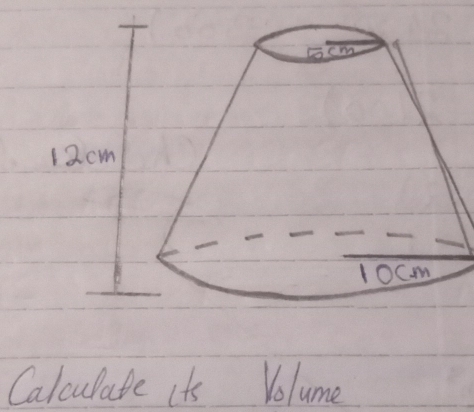 5cm
12cm
10cm
Calculate its Volume